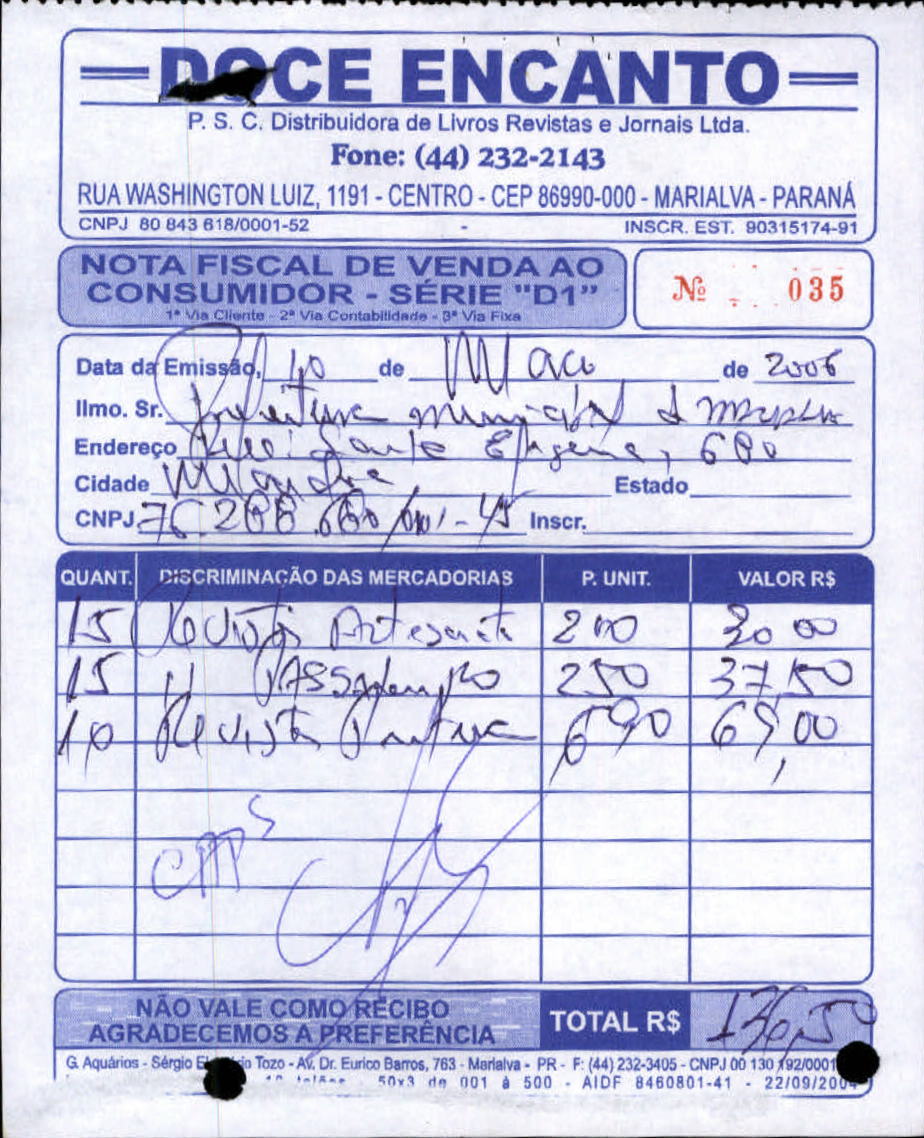 DOCE ENCANTO
P. S. C. Distribuidora de Livros Revistas e Jornais Ltda.
Fone: (44) 232-2143
RUA WASHINGTON LUIZ, 1191 - CENTRO - CEP 86990-000 - MARIALVA - PARANÁ
CNPJ 80 843 618/0001-52 - INSCR. EST. 90315174-91
NOTA FISCAL DE VENDA AO
CONSUMIDOR - SÉRIE "D1"
1ª Via Cliente - 2ª Via Contabilidade - 3ª Via Fixa
Nº 035
Data da Emissão, 10 de de 2006
Ilmo. Sr. Prefeitura Municipal d
Endereço Rua Santa Efigenia, 680
Cidade Marialva Estado
CNPJ. Inscr.
QUANT. DISCRIMINAÇÃO DAS MERCADORIAS P. UNIT. VALOR R$
15 Revista 200 30 00
15 11 250 37,50
10 Revista 6 90 69,00
CAPS
NÃO VALE COMO RECIBO
AGRADECEMOS A PREFERÊNCIA
TOTAL R$ 136,50
G. Aquários - Sérgio Tozo - AV. Dr. Eurico Barros, 763 - Marialva - PR - F: (44) 232-3405 - CNPJ 00 130 192/0001
50x3 de 001 à 500 - AIDF 8460801-41 - 22/09/2004